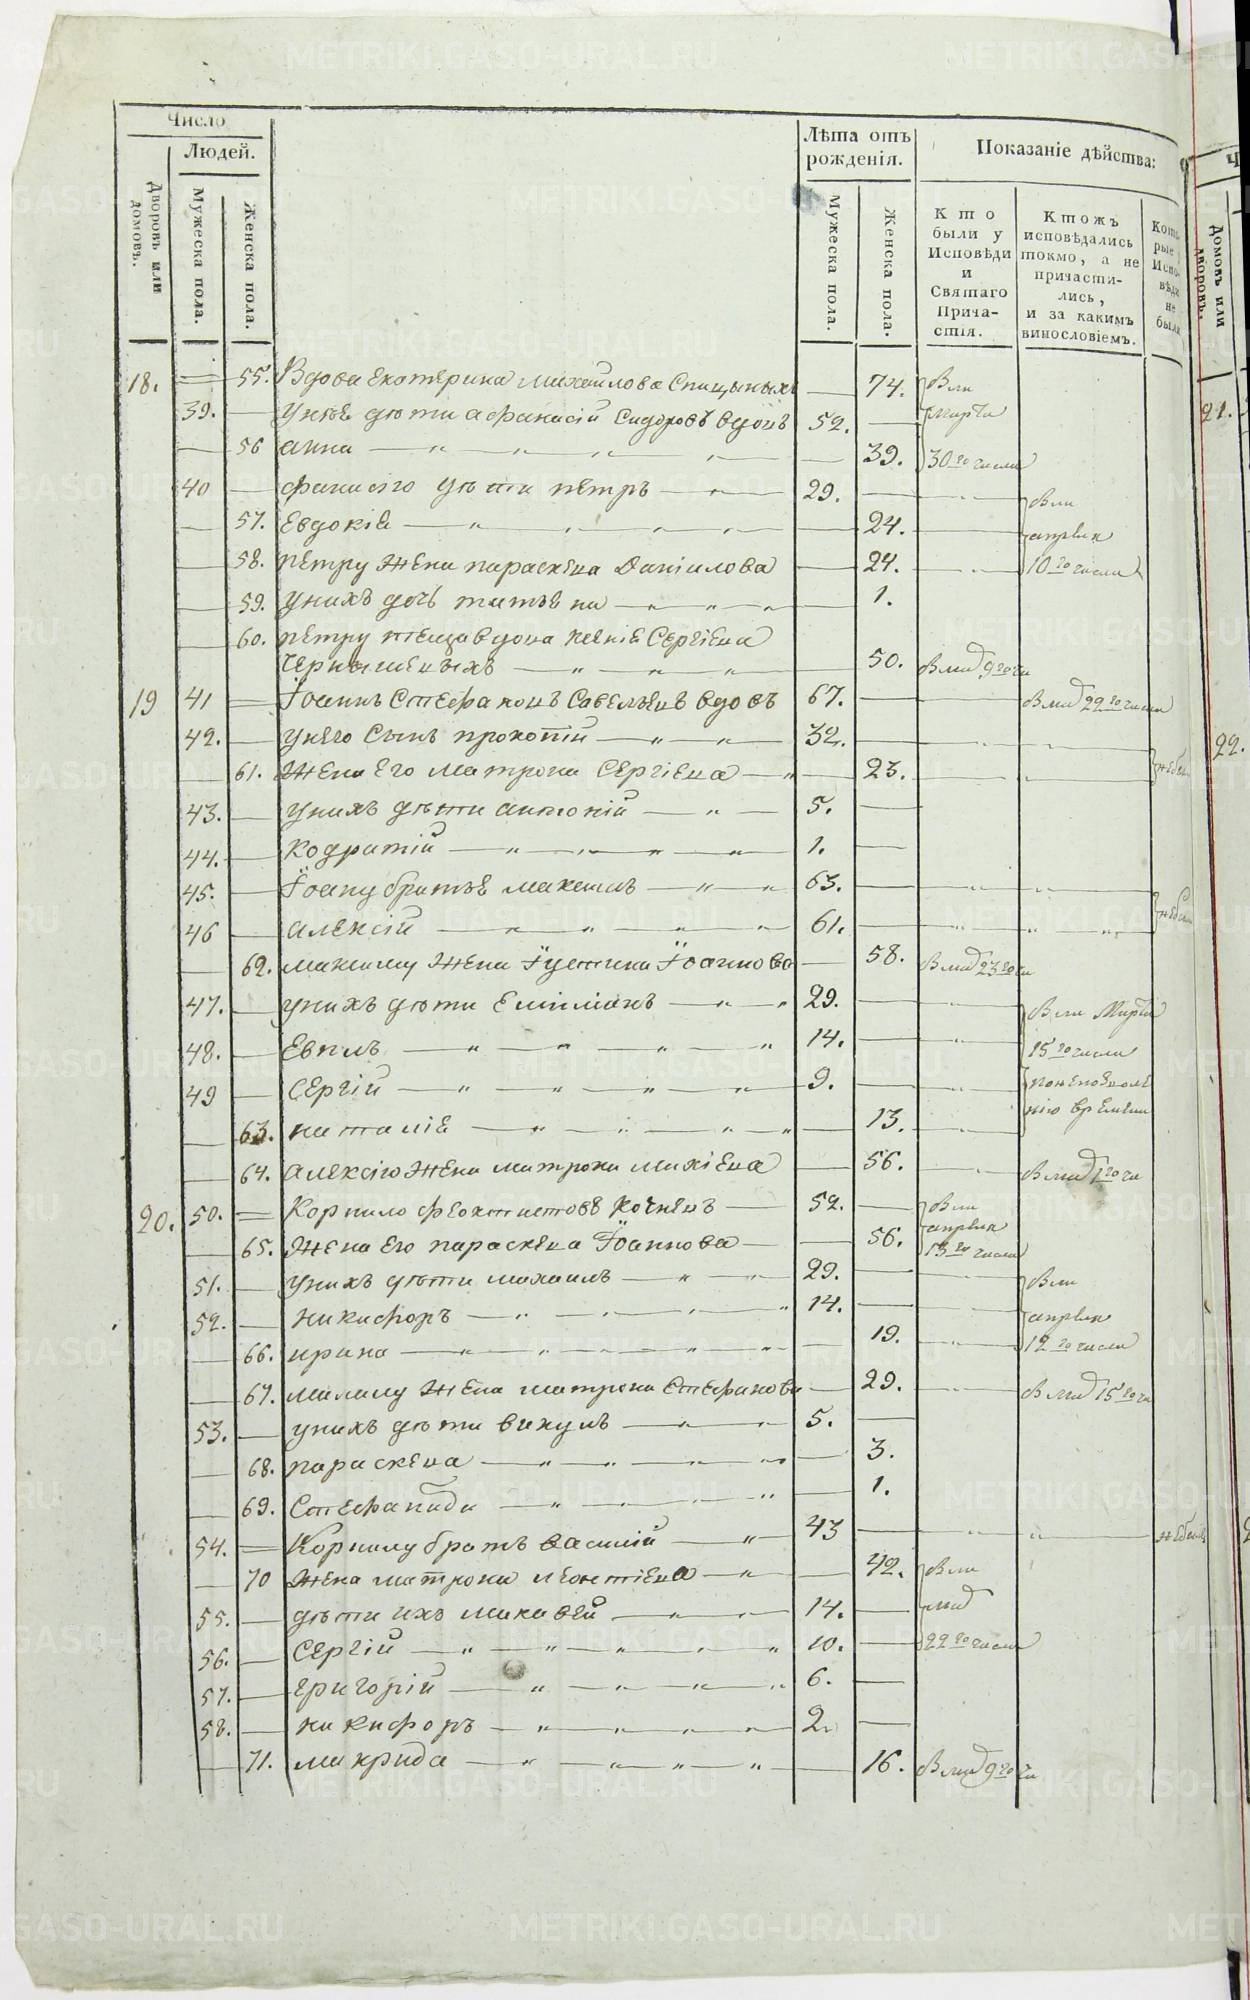 Число
Людей.
Лѣта отъ рожденія.
Показаніе дѣйства:
Дворовъ или домовъ.
Мужеска пола.
Женска пола.
Мужеска пола.
Женска пола.
Кто были у Исповѣди и Святаго Прича-стія.
Ктожъ исповѣдались токмо, а не причасти-лись, и за какимъ винословіемъ.
Кото-рые у Испо-вѣди не были
Домовъ или дворовъ.
18. 55. Вдова Екатерина Михайлова Спицыныхъ 74. Вми
39. Унѣе дѣти Афанасій Сидоровъ вдовъ 52. марта
56 анна 39. 30го числа
40 фанасіо дѣти петръ 29. Вми
57. Евдокіѣ 24. апреля
58. петру жена параскева Даніилова 24. 10го числа
59. унихъ дочь татьѣна 1.
60. петру теща вдова ксеніѣ Сергіева
Чернышевыхъ 50. Вмад 9го чи
19 41 Іоаннъ Стефановъ Савельевъ вдовъ 67. Вмад 29го числа
42. унего сынъ прокопій 32.
61. жена его матрона Сергіева 23. небыл
43. унихъ дѣти антоній 5.
44. Кодратій 1.
45. Іоану братьѣ максимъ 63.
46 алексій 61. небыли
62. максиму жена Іустина Іоаннова 58. Вмад 23го чи
47. унихъ дѣти Емиліанъ 29. Вми Марта
48. Евплъ 14. 15го числа
49 Сергій 9.
63. наталіѣ 13. нію времени
64. алексію жена матрона михіева 56. Вмад 1го чи
20. 50. Корнило феоктистовъ Кочневъ 52. Вми
апреля
65. жена его параскева Іоаннова 56. 13го числа
51. унихъ дѣти михаилъ 29. Вми
52. никифоръ 14. апреля
66. ирина 19. 12го числа
67. михаилу жена матрона Стефанова 29. Вмад 15го чи
53. унихъ дѣти викулъ 5.
68. параскева 3.
69. Стефанида 1.
54. Корнилу братъ василій 43 небылъ
70 жена матрона леонтіева 42. Вми
55. дѣти ихъ макавей 14. мад
56. Сергій 10. 22го числа
57. григорій 6.
58. никифоръ 2.
71. макрида 16. Вмад 9го чи
21.
22.
METRIKI.GASO-URAL.RU